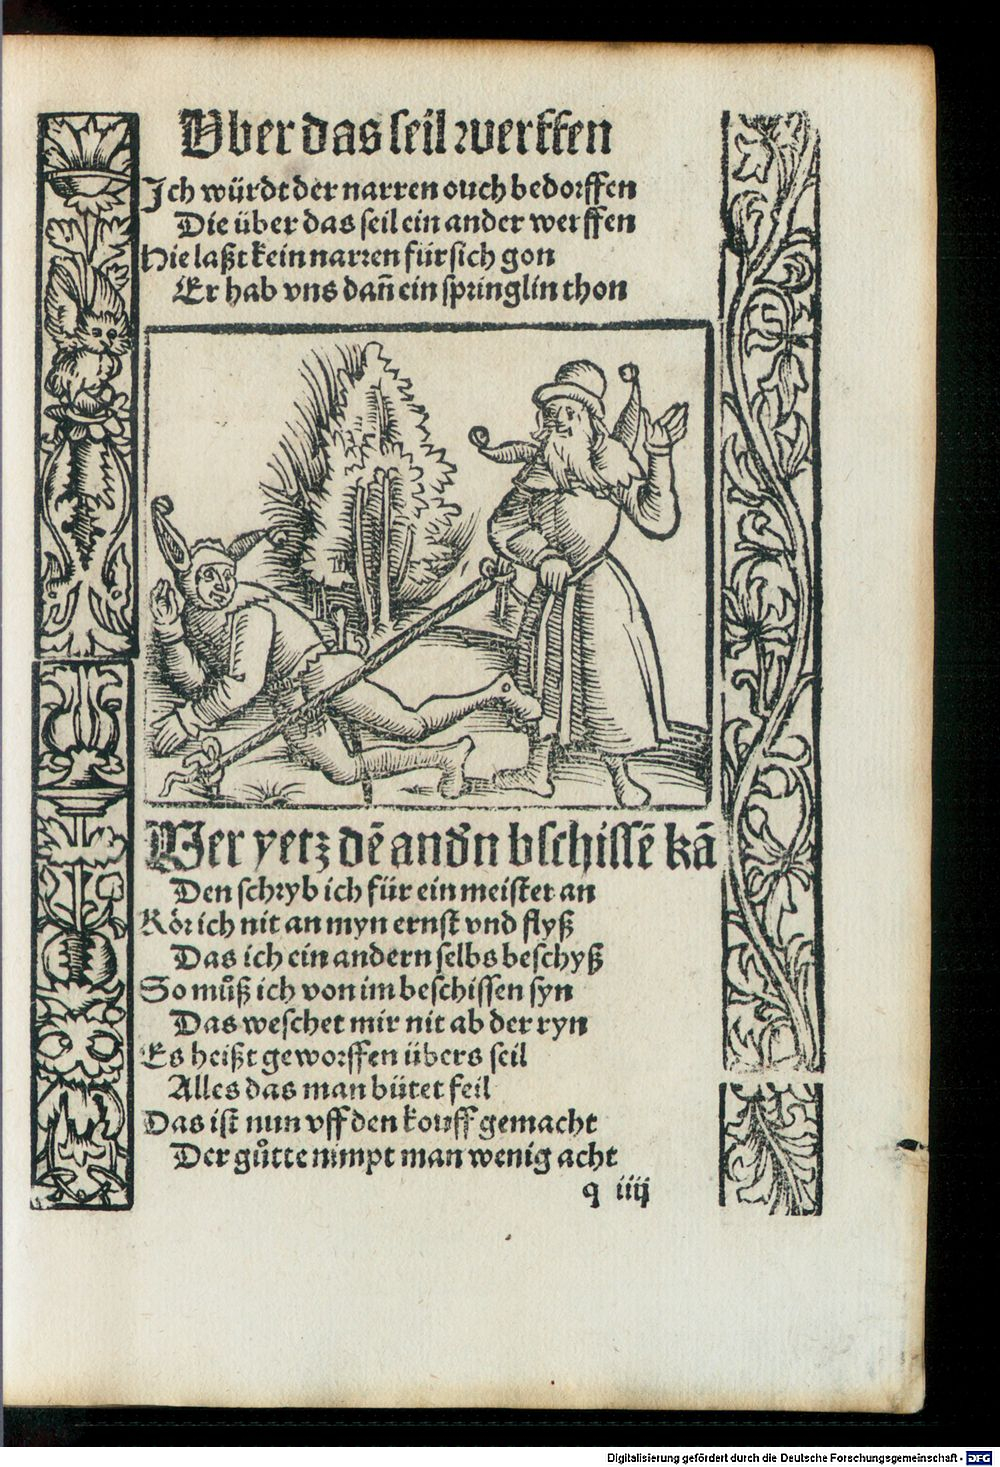 Vber das seil werffen
Ich würdt der narren ouch bedorffen
Die über das seil ein ander werffen
Hie laßt kein narren für sich gon
Er hab vns dañ ein springlin thon
Wer yetz dē andn̄ bschissē kā
Den schryb ich für ein meister an
Kör ich nit an myn ernst vnd flyß
Das ich ein andern selbs beschyß
So muͦß ich von im beschissen syn
Das weschet mir nit ab der ryn
Es heißt geworffen übers seil
Alles das man bütet feil
Das ist nun vff den kouff gemacht
Der guͤtte nimpt man wenig acht
q iiij
Digitalisierung gefördert durch die Deutsche Forschungsgemeinschaft - DFG